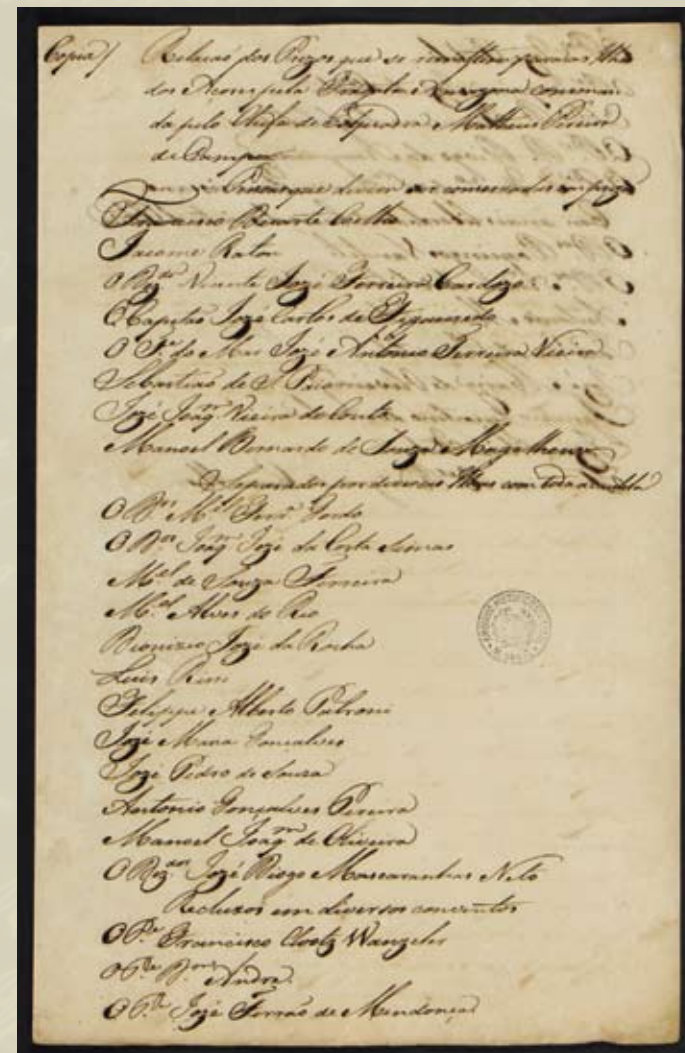 Copia / Relação dos Prezos que se remettem para as Ilhas
dos Açores pela Fragata Amazona comman
da pelo Chefe de Esquadra Matheus Pereira
de Campos
Prezos que devem ser conservados em prizão
Francisco Duarte Coelho
Jacome Ratton
O Dez.or Vicente Jozé Ferreira Cardozo
O Capitão Jozé Carlos de Figueiredo
O P.e do Mar Jozé Antonio Ferreira Vieira
Sebastião de S. Paio
Jozé Joaq.m Vieira do Couto
Manoel Bernardo de Souza e Magalhaens
Separados por diversas Ilhas com toda a cautela
O B.el M.el Ferr.a Gordo
O B.el Joaq.m Jozé da Costa Simas
M.el de Souza Ferreira
M.el Alves do Rio
Dionizio Jozé da Rocha
Luis
Felippe Alberto Patroni
Jozé Maria Goncalves
Jozé Pedro de Souza
Antonio Gonçalves Pereira
Manoel Joaq.m de Oliveira
O Dez.dor Jozé Diogo Mascaranhas Neto
Recluzos em diversos conventos
O P.e Francisco Wanzeler
O P.e André
O P.e Jozé Ferrão de Mendonça